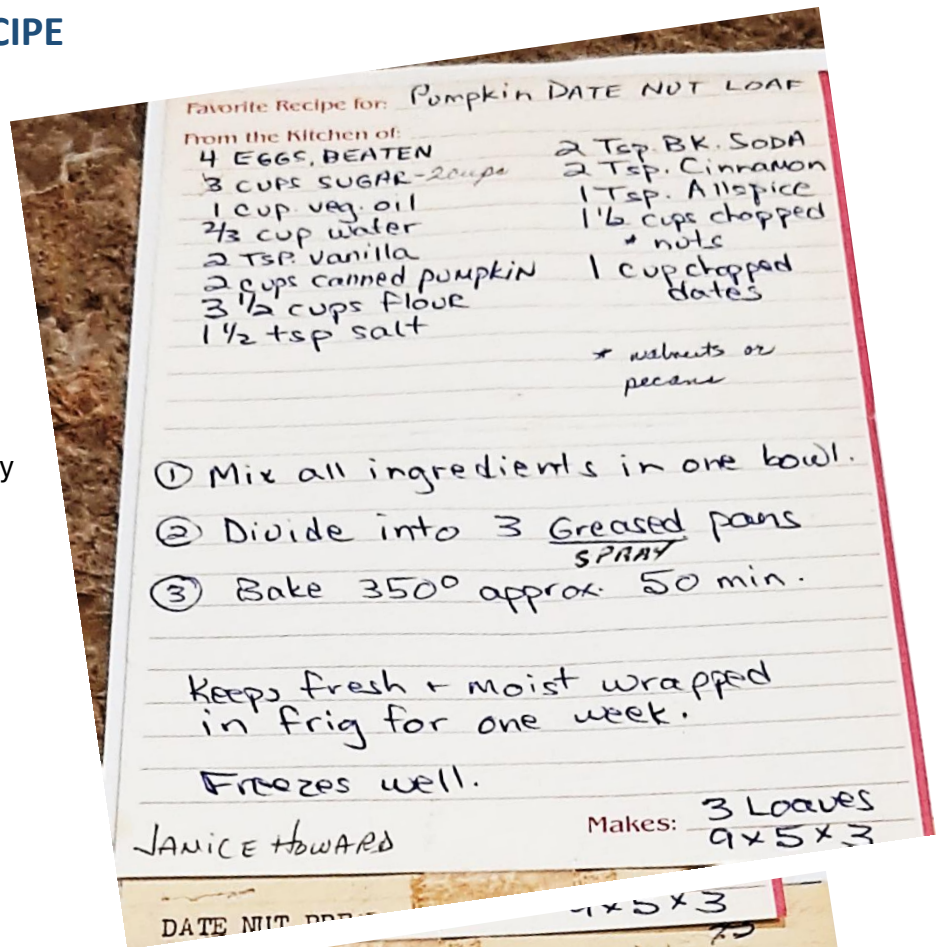 CIPE
Favorite Recipe for: Pumpkin DATE NUT LOAF
From the Kitchen of:
4 EGGS, BEATEN
3 CUPS SUGAR-2cups
1 cup. veg. oil
2/3 cup water
2 TSP. vanilla
2 cups canned pumpkin
3 1/2 cups flour
1 1/2 tsp salt
2 Tsp. BK. SODA
2 Tsp. Cinnamon
1 Tsp. Allspice
cups chopped
* nuts
1 cup chopped
dates
* walnuts or
pecans
y
① Mix all ingredients in one bowl.
② Divide into 3 Greased pans
SPRAY
③ Bake 350° approx. 50 min.
Keeps fresh + moist wrapped
in frig for one week.
Freezes well.
Makes: 3 Loaves
9x5x3
JANICE HOWARD
DATE NUT
x5x3